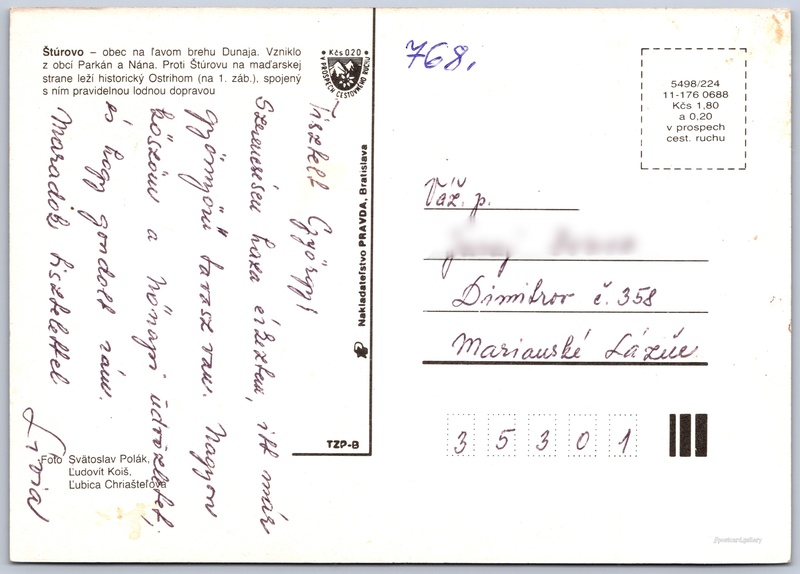 Štúrovo – obec na ľavom brehu Dunaja. Vzniklo
z obcí Parkán a Nána. Proti Štúrovu na maďarskej
strane leží historický Ostrihom (na 1. záb.), spojený
s ním pravidelnou lodnou dopravou
Kčs 0.20
V PROSPECH CESTOVNÉHO RUCHU
Tisztelt Györgyi
Szerencsésen haza érkeztem, itt már
gyönyörű tavasz van. Nagyon
köszönöm a nőnapi üdvözletet,
és hogy gondolt rám.
Maradok tisztelettel
Livia
Foto Svätoslav Polák,
Ľudovít Koiš,
Ľubica Chriašteľová
Nakladateľstvo PRAVDA, Bratislava
TZP-B
768.
5498/224
11-176 0688
Kčs 1,80
a 0,20
v prospech
cest. ruchu
Váž. p.
Dimitrov č. 358
Marianské Lázne
35301
//postcard.gallery